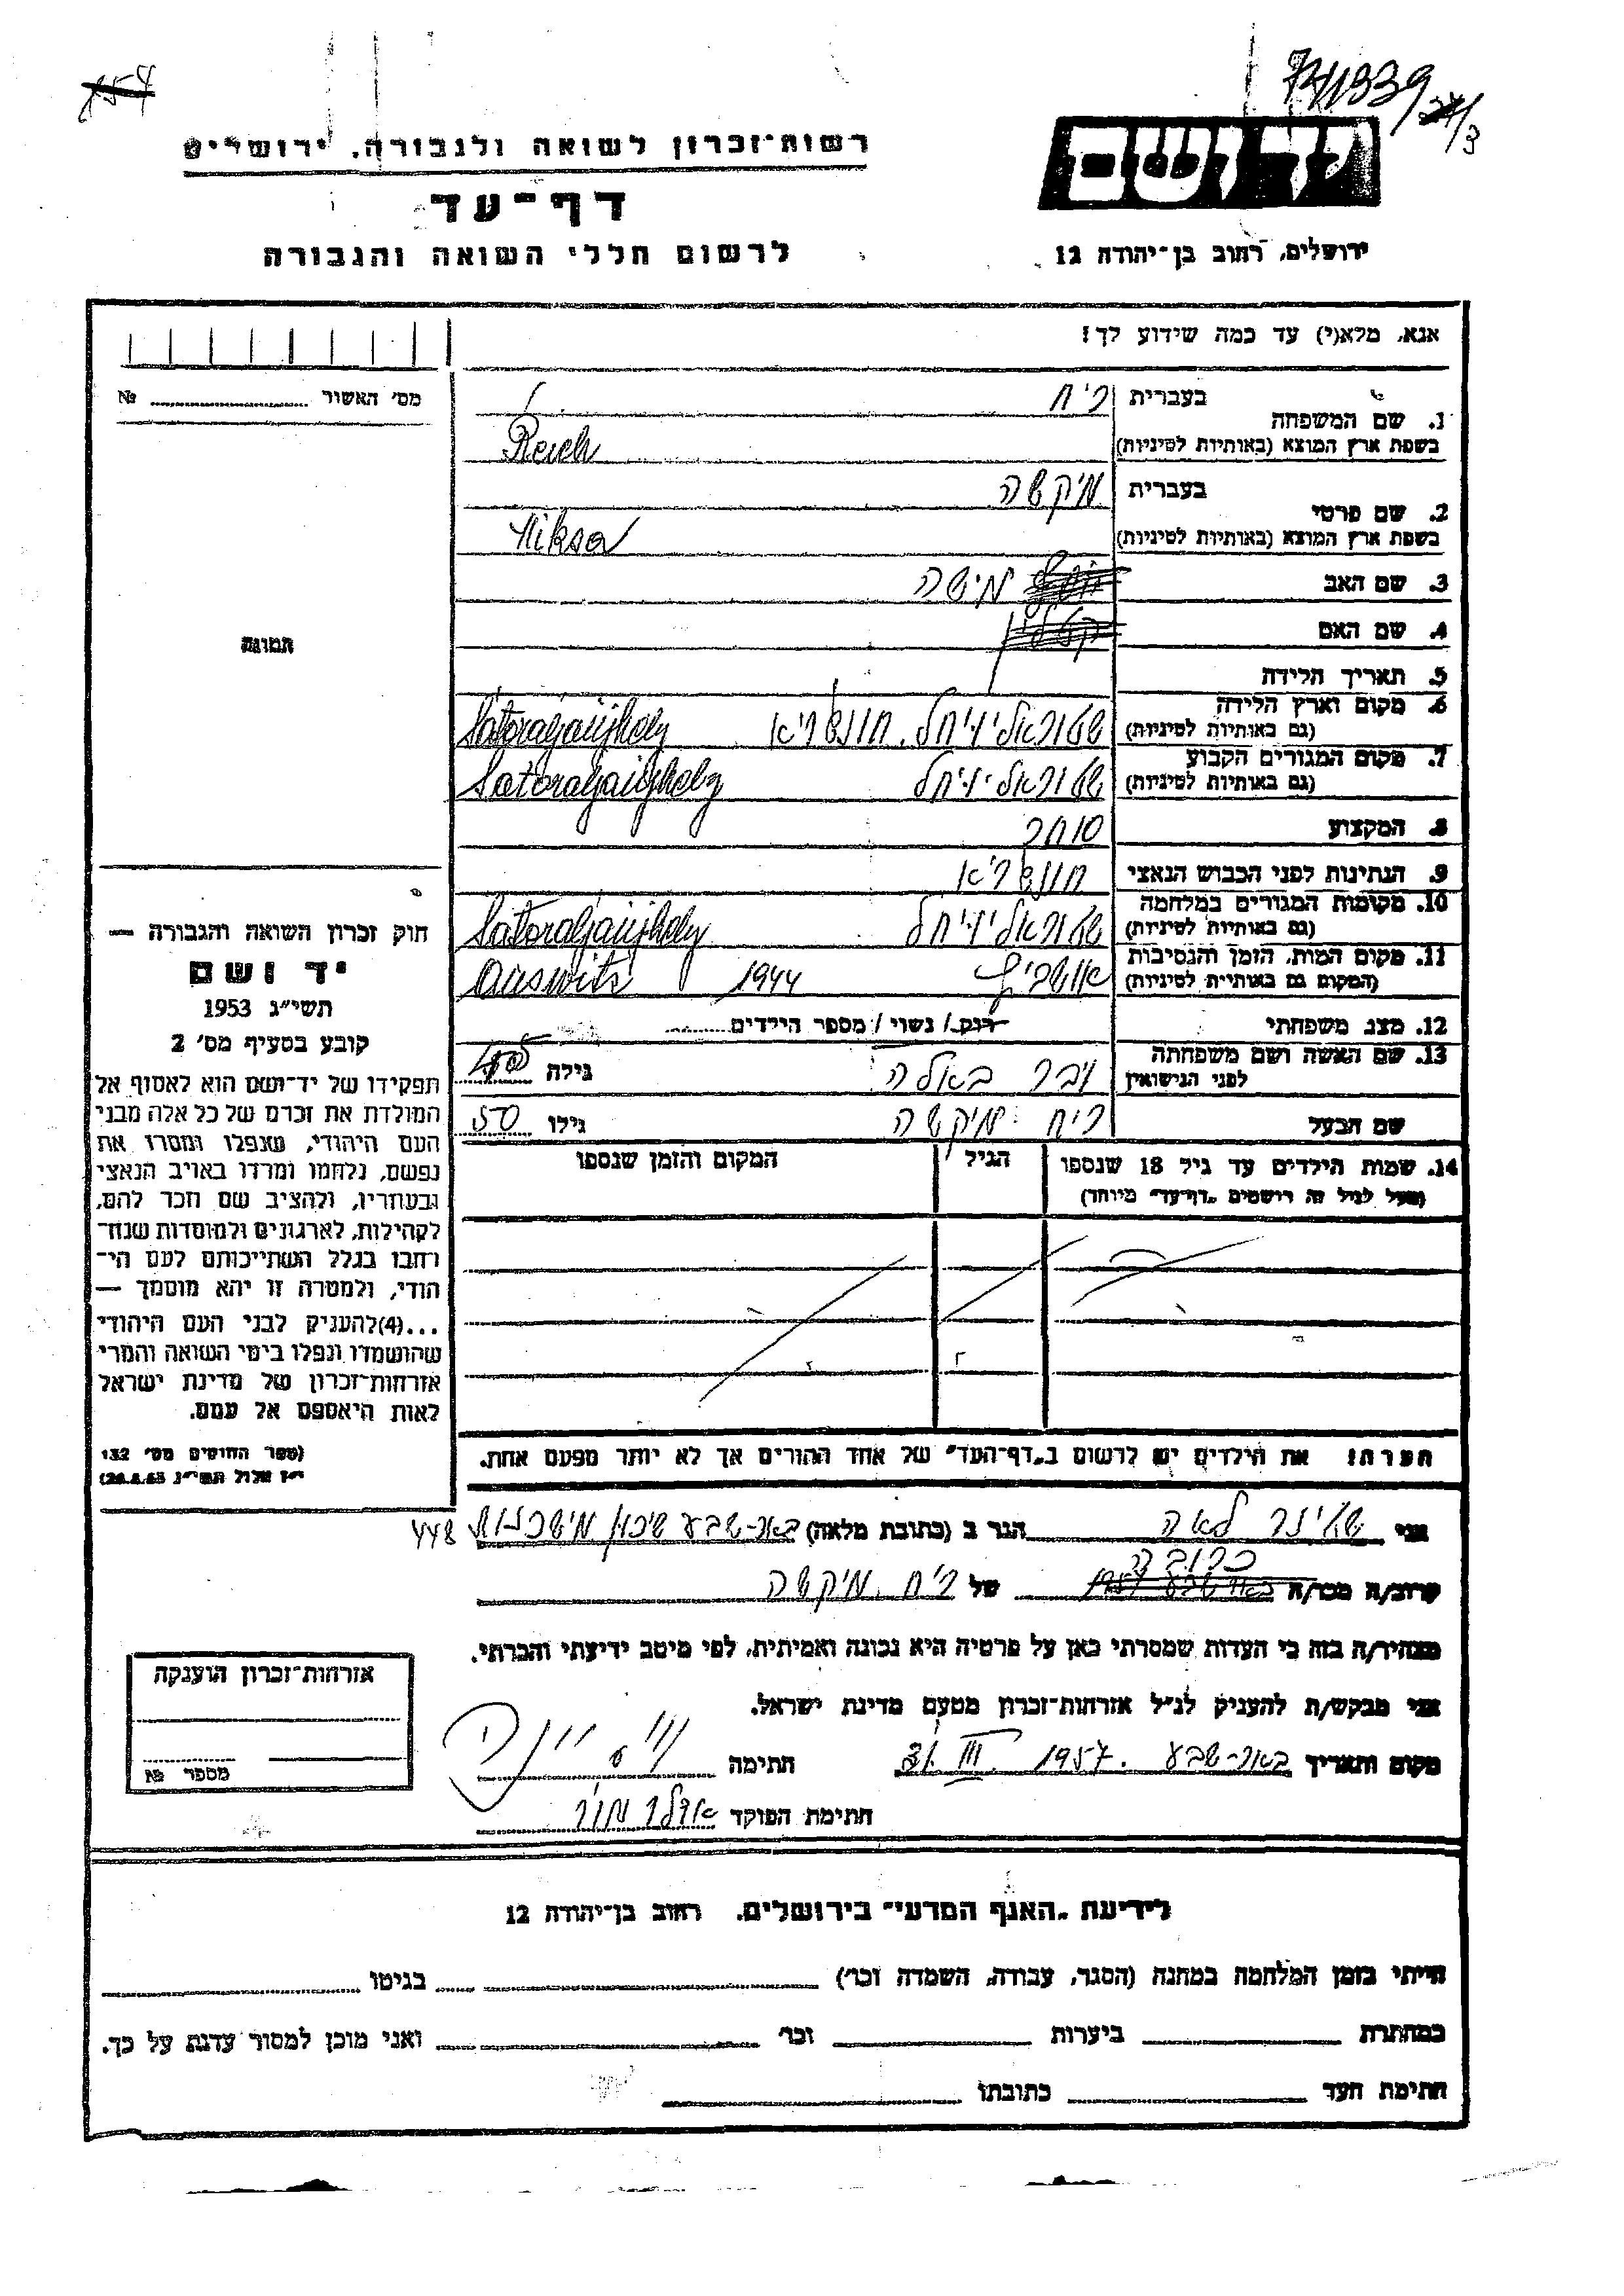 754
יד ושם
ירושלים, רחוב בן־יהודה 12
רשות־זכרון לשואה ולגבורה, ירושלים
דף־עד
לרשום חללי השואה והגבורה
אנא, מלא(י) עד כמה שידוע לך!
מס' האשור № 
תמונה
1. שם המשפחה
בעברית רייח
בשפת ארץ המוצא (באותיות לטיניות) Reich
2. שם פרטי
בעברית מיקשה
בשפת ארץ המוצא (באותיות לטיניות) Miksa
3. שם האב מישה
4. שם האם
5. תאריך הלידה
6. מקום וארץ הלידה
(גם באותיות לטיניות) שטוראליויהל, הונגריא Sátoraljaújhely
7. מקום המגורים הקבוע
(גם באותיות לטיניות) שטוראליויהל Sátoraljaújhely
8. המקצוע סוחר
9. הנתינות לפני הכבוש הנאצי הונגריא
10. מקומות המגורים במלחמה
(גם באותיות לטיניות) שטוראליויהל Sátoraljaújhely
11. מקום המות, הזמן והנסיבות
(המקום גם באותיות לטיניות) אושביץ 1944 Auswitz
12. מצב משפחתי רווק / נשוי / מספר הילדים
13. שם האשה ושם משפחתה
לפני הנישואין ובר באלה גילה
שם הבעל רייח מיקשה גילו 50
14. שמות הילדים עד גיל 18 שנספו
(מעל לגיל זה רושמים „דף־עד" מיוחד)
הגיל
המקום והזמן שנספו
הערה: את הילדים יש לרשום ב„דף־העד" של אחד ההורים אך לא יותר מפעם אחת.
חוק זכרון השואה והגבורה —
יד ושם
תשי"ג 1953
קובע בסעיף מס' 2
תפקידו של יד־ושם הוא לאסוף אל
המולדת את זכרם של כל אלה מבני
העם היהודי, שנפלו ומסרו את
נפשם, נלחמו ומרדו באויב הנאצי
ובעוזריו, ולהציב שם וזכר להם,
לקהילות, לארגונים ולמוסדות שנח־
רבו בגלל השתייכותם לעם הי־
הודי, ולמטרה זו יהא מוסמך —
...(4)להעניק לבני העם היהודי
שהושמדו ונפלו בימי השואה והמרי
אזרחות־זכרון של מדינת ישראל
לאות היאספם אל עמם.
(ספר החוקים מס' 132
י"ז אלול תשי"ג 28.8.53)
אני לאה הגר ב (כתובת מלאה) באר-שבע שיכון 448
קרוב/ה מכר/ה קרובה של רייח מיקשה
מצהיר/ה בזה כי העדות שמסרתי כאן על פרטיה היא נכונה ואמיתית, לפי מיטב ידיעתי והכרתי.
אני מבקש/ת להעניק לנ"ל אזרחות־זכרון מטעם מדינת ישראל.
מקום ותאריך באר-שבע 1957. III. 31 חתימה
חתימת הפוקד
אזרחות־זכרון הוענקה
מספר №
לידיעת „האגף המדעי" בירושלים, רחוב בן־יהודה 12
הייתי בזמן המלחמה במחנה (הסגר, עבודה, השמדה וכו') בגיטו
במחתרת ביערות וכו' ואני מוכן למסור עדות על כך.
חתימת העד כתובתו